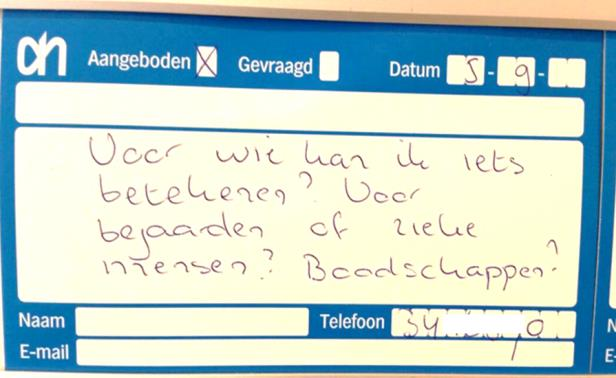 ah Aangeboden X Gevraagd Datum 5 - 9 -
Voor wie kan ik iets
betekenen? Voor
bejaarden of zieke
mensen? Boodschappen?
Naam Telefoon 34 0
E-mail